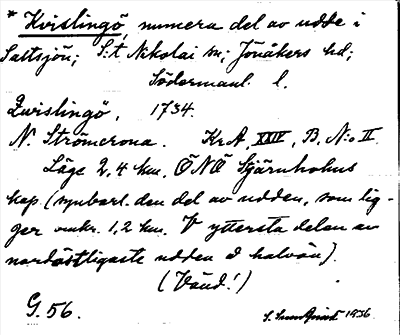 * Kvislingö, numera del av udde i
Saltsjön; S:t Nikolai sn; Jönåkers hd;
Södermanl. l.
Qvislingö, 1734.
N. Strömcrona. KrA, XXIV, B. N:o II
Läge 2,4 km. ÖNÖ Stjärnholms
kap. (synbarl. den del av udden, som lig-
ger omkr. 1,2 km. V yttersta delen av
nordöstligaste udden å halvön).
(Vänd!)
G. 56.
1936